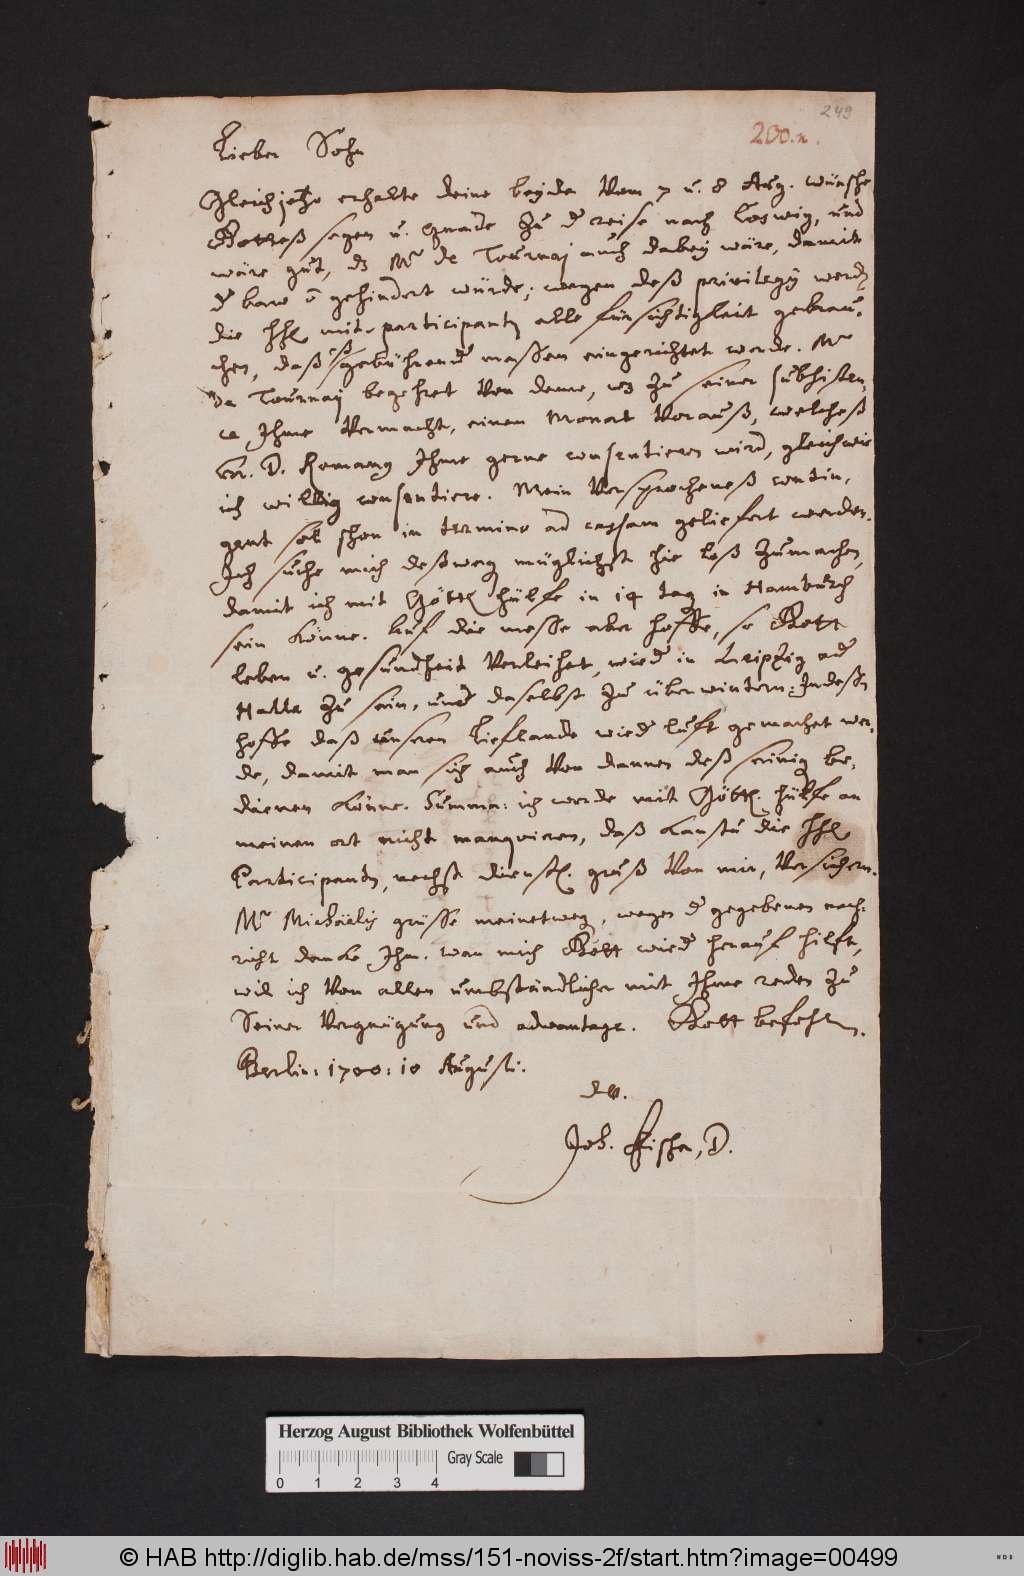 249
200.n.
Lieber Sohn
Gleich jetzo erhalte deine beyde Vom 7 u. 8 Aug. wünsche
Gottes segen u. Gnade zu d reise nach Coswig, und
wäre gut, dz Mr de Tournaj auch dabey wäre, damit
d baw õ gehindert würde; wegen deß privilegÿ werdẽ
die HhE mit-participantẽ alle fürsichtigkeit gebrau-
chen, daß eß gebührend massen eingerichtet werde. Mr
de Tournaj begehret Von deme, wz zu seiner subsisten-
ce Ihme Vermacht, einen Monat Vorauß, welcheß
Hr. D. Romang Ihme gerne consentieren wird, gleichwie
ich willig consentiere. Mein Versprocheneß contin-
gent sol schon in termino ad cassam geliefert werden.
Ich suche mich deßweg müglichst hie loß zumachen,
damit ich mit Göttl hülfe in 14 tag in Hamburch
sein könne. Auf die messe aber hoffe, so Gott
leben u. gesundheit Verleihet, wied in Leipzig od
Halle zu sein, und daselbst zu überwintern: Indeßẽ
hoffe daß unserem Lieflande wied luft gemachet wer-
de, damit man sich auch Von dannen deß seinig be-
dienen könne. Summa: ich werde mit Göttl. hülfe an
meinen ort nicht manquieren, daß kanstu die HhE
Participantẽ, nechst dienstl. gruß Von mir, Versichern.
Mr Michaëlis grüsse meinetweg, wegen d gegebenen nach-
richt dancke Ihm. wan mich Gott wied herauf hilft,
wil ich Von allen umbständlicher mit Ihme reden zu
Seiner Vergnügung und advantage. Gott befohlen.
Berlin: 1700: 10 Augusti.
dw.
Joh. Fischer, D.
Herzog August Bibliothek Wolfenbüttel
Gray Scale
0 1 2 3 4
© HAB http://diglib.hab.de/mss/151-noviss-2f/start.htm?image=00499